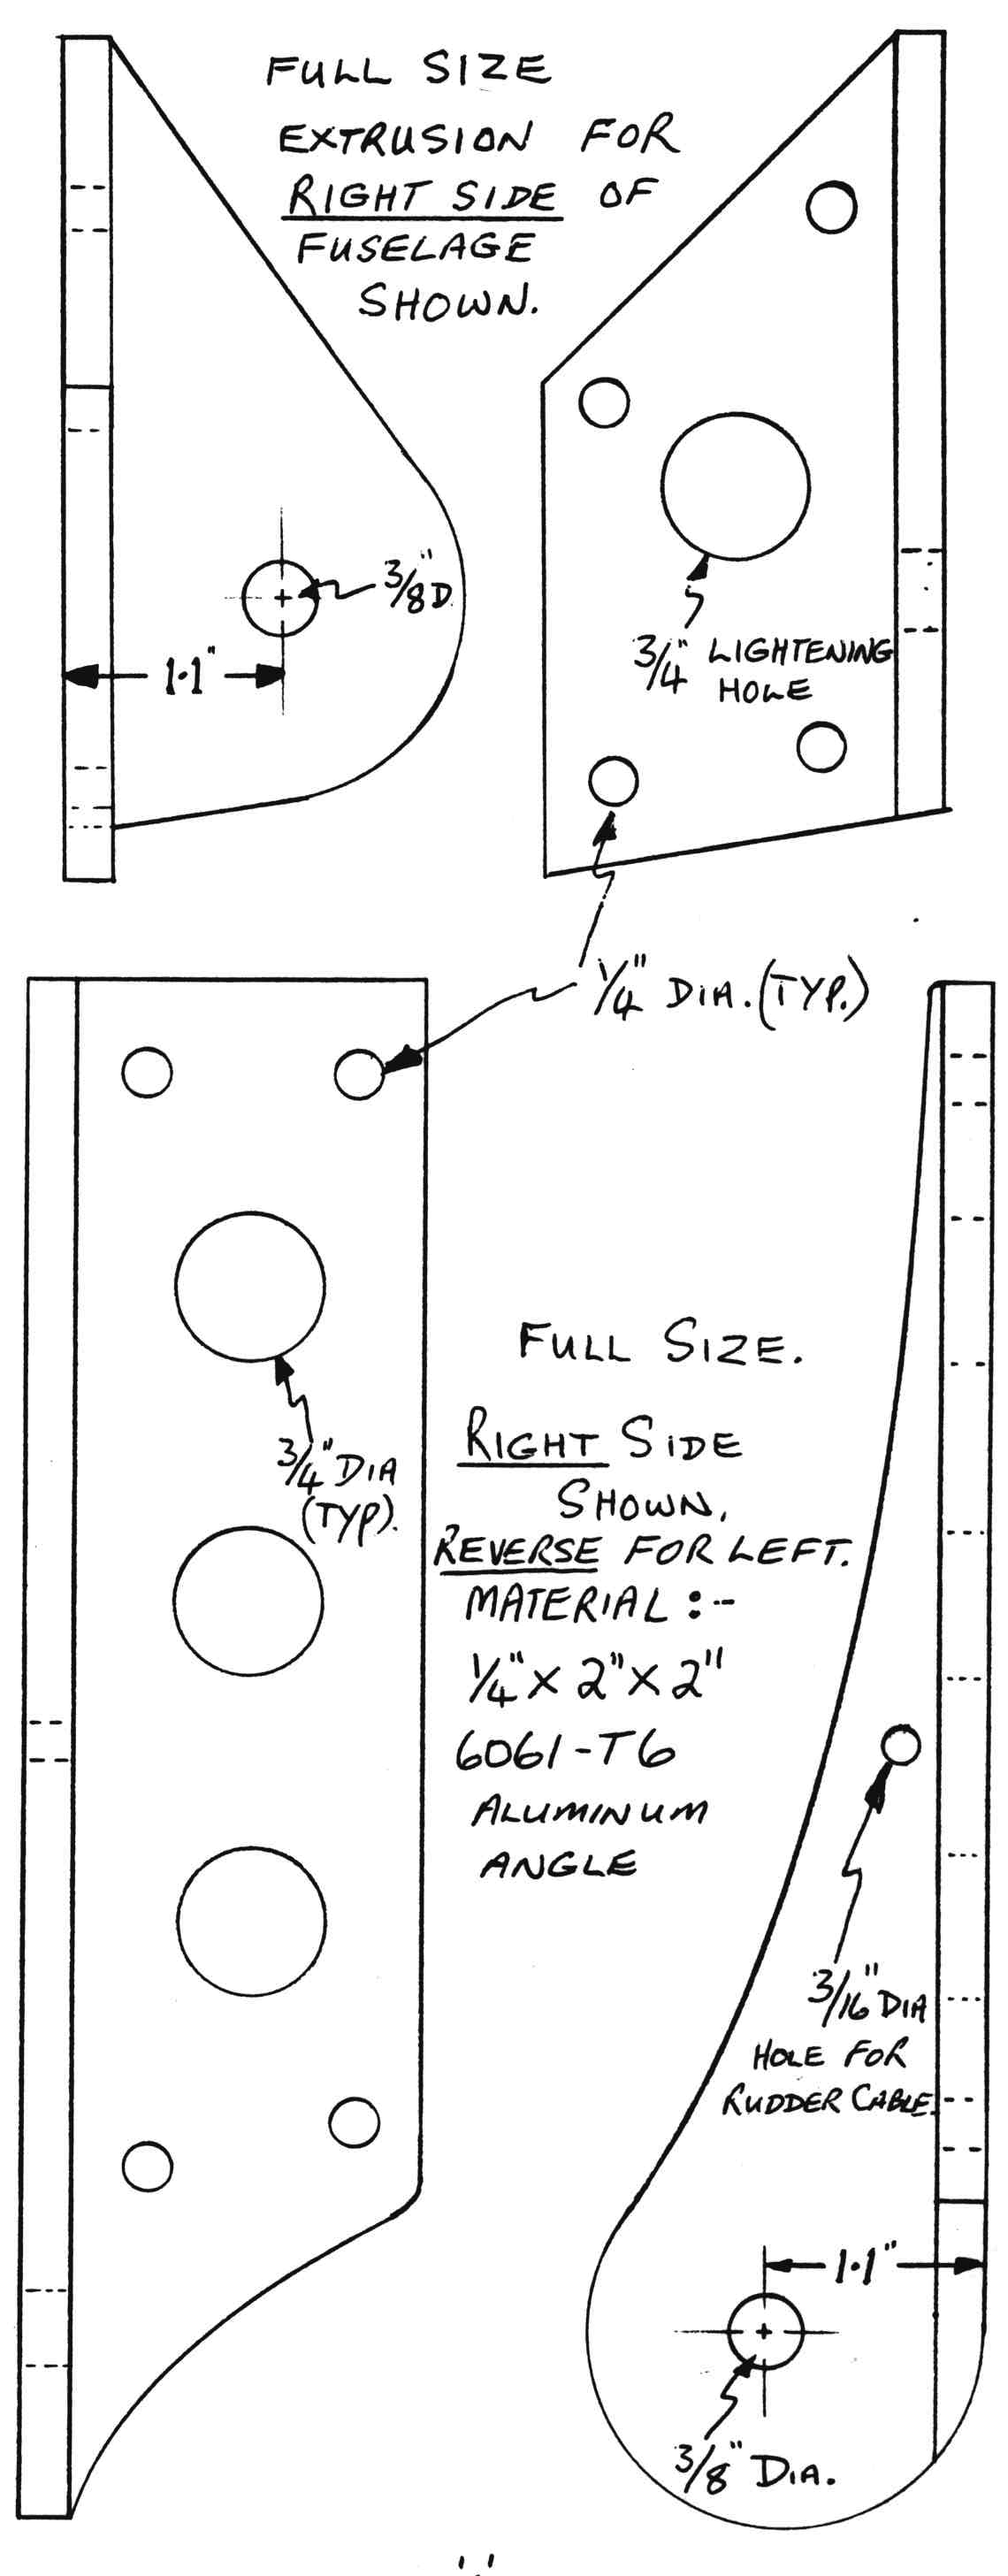 FULL SIZE
EXTRUSION FOR
RIGHT SIDE OF
FUSELAGE
SHOWN.
3/8" D
1·1"
3/4" LIGHTENING
HOLE
1/4" DIA. (TYP.)
3/4" DIA
(TYP).
FULL SIZE.
RIGHT SIDE
SHOWN,
REVERSE FOR LEFT.
MATERIAL :-
1/4" X 2" X 2"
6061-T6
ALUMINUM
ANGLE
3/16" DIA
HOLE FOR
RUDDER CABLE.
1·1"
3/8" DIA.